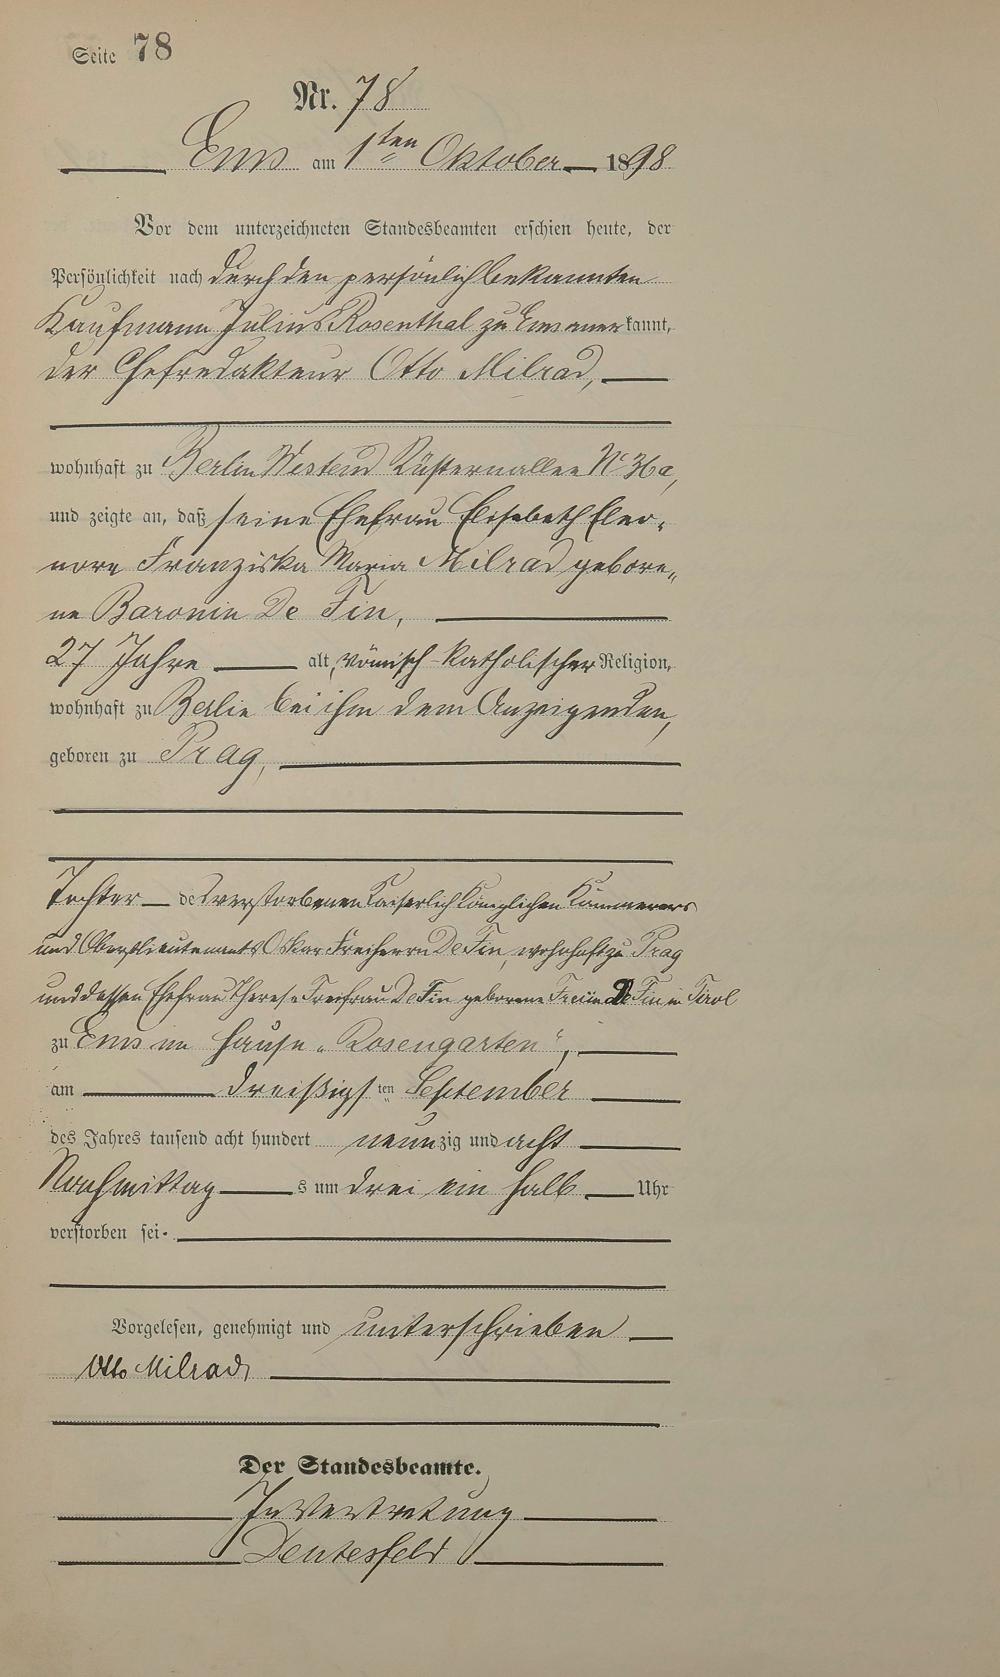 Seite 78
Nr. 78
Ems am 1ten Oktober 1898
Vor dem unterzeichneten Standesbeamten erschien heute, der
Persönlichkeit nach durch den persönlich bekannten
Kaufmann Julius Rosenthal zu Ems anerkannt,
der Chefredakteur Otto Milrad,
wohnhaft zu Berlin Westend Rüsternallee No 36a,
und zeigte an, daß seine Ehefrau Elisabeth Eleo-
nore Franziska Maria Milrad gebore-
ne Baronin De Fin,
27 Jahre alt, römisch-katholischer Religion,
wohnhaft zu Berlin bei ihm dem Anzeigenden,
geboren zu Prag,
Tochter des verstorbenen Kaiserlich Königlichen Kämmerers
und Oberstlieutenants Oskar Freiherrn De Fin, wohnhaft zu Prag
und dessen Ehefrau Therese Freifrau De Fin geborene Freiin De Fin in Tirol
zu Ems im Hause „Rosengarten",
am dreißigsten September
des Jahres tausend acht hundert neunzig und acht
Nachmittags um drei ein halb Uhr
verstorben sei.
Vorgelesen, genehmigt und unterschrieben
Otto Milrad
Der Standesbeamte.
In Vertretung